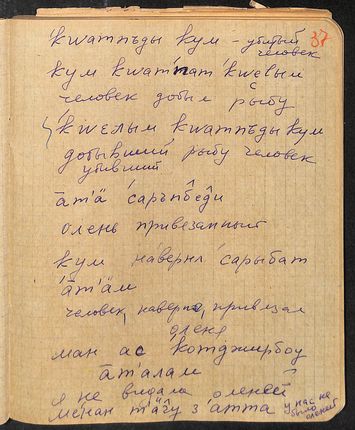 37
'kwатпъды kум – убитый
человек
kум kwат'пат 'kwе̄лым
человек добыл рыбу
'kwɛлым kwатпъды kум
добывший рыбу человек
убивший
а̄т'ӓ 'саръпб̂еди
олень привезанный
kум на́верна 'сарыбат
'а̄т'ӓм
человек, наверно, привязал
оленя
ман ас 'kотджирбоу
а̄талам
я не видала оленей
ме̄нан т'а̄г̨у з'а̄тта
у нас не
было
оленей